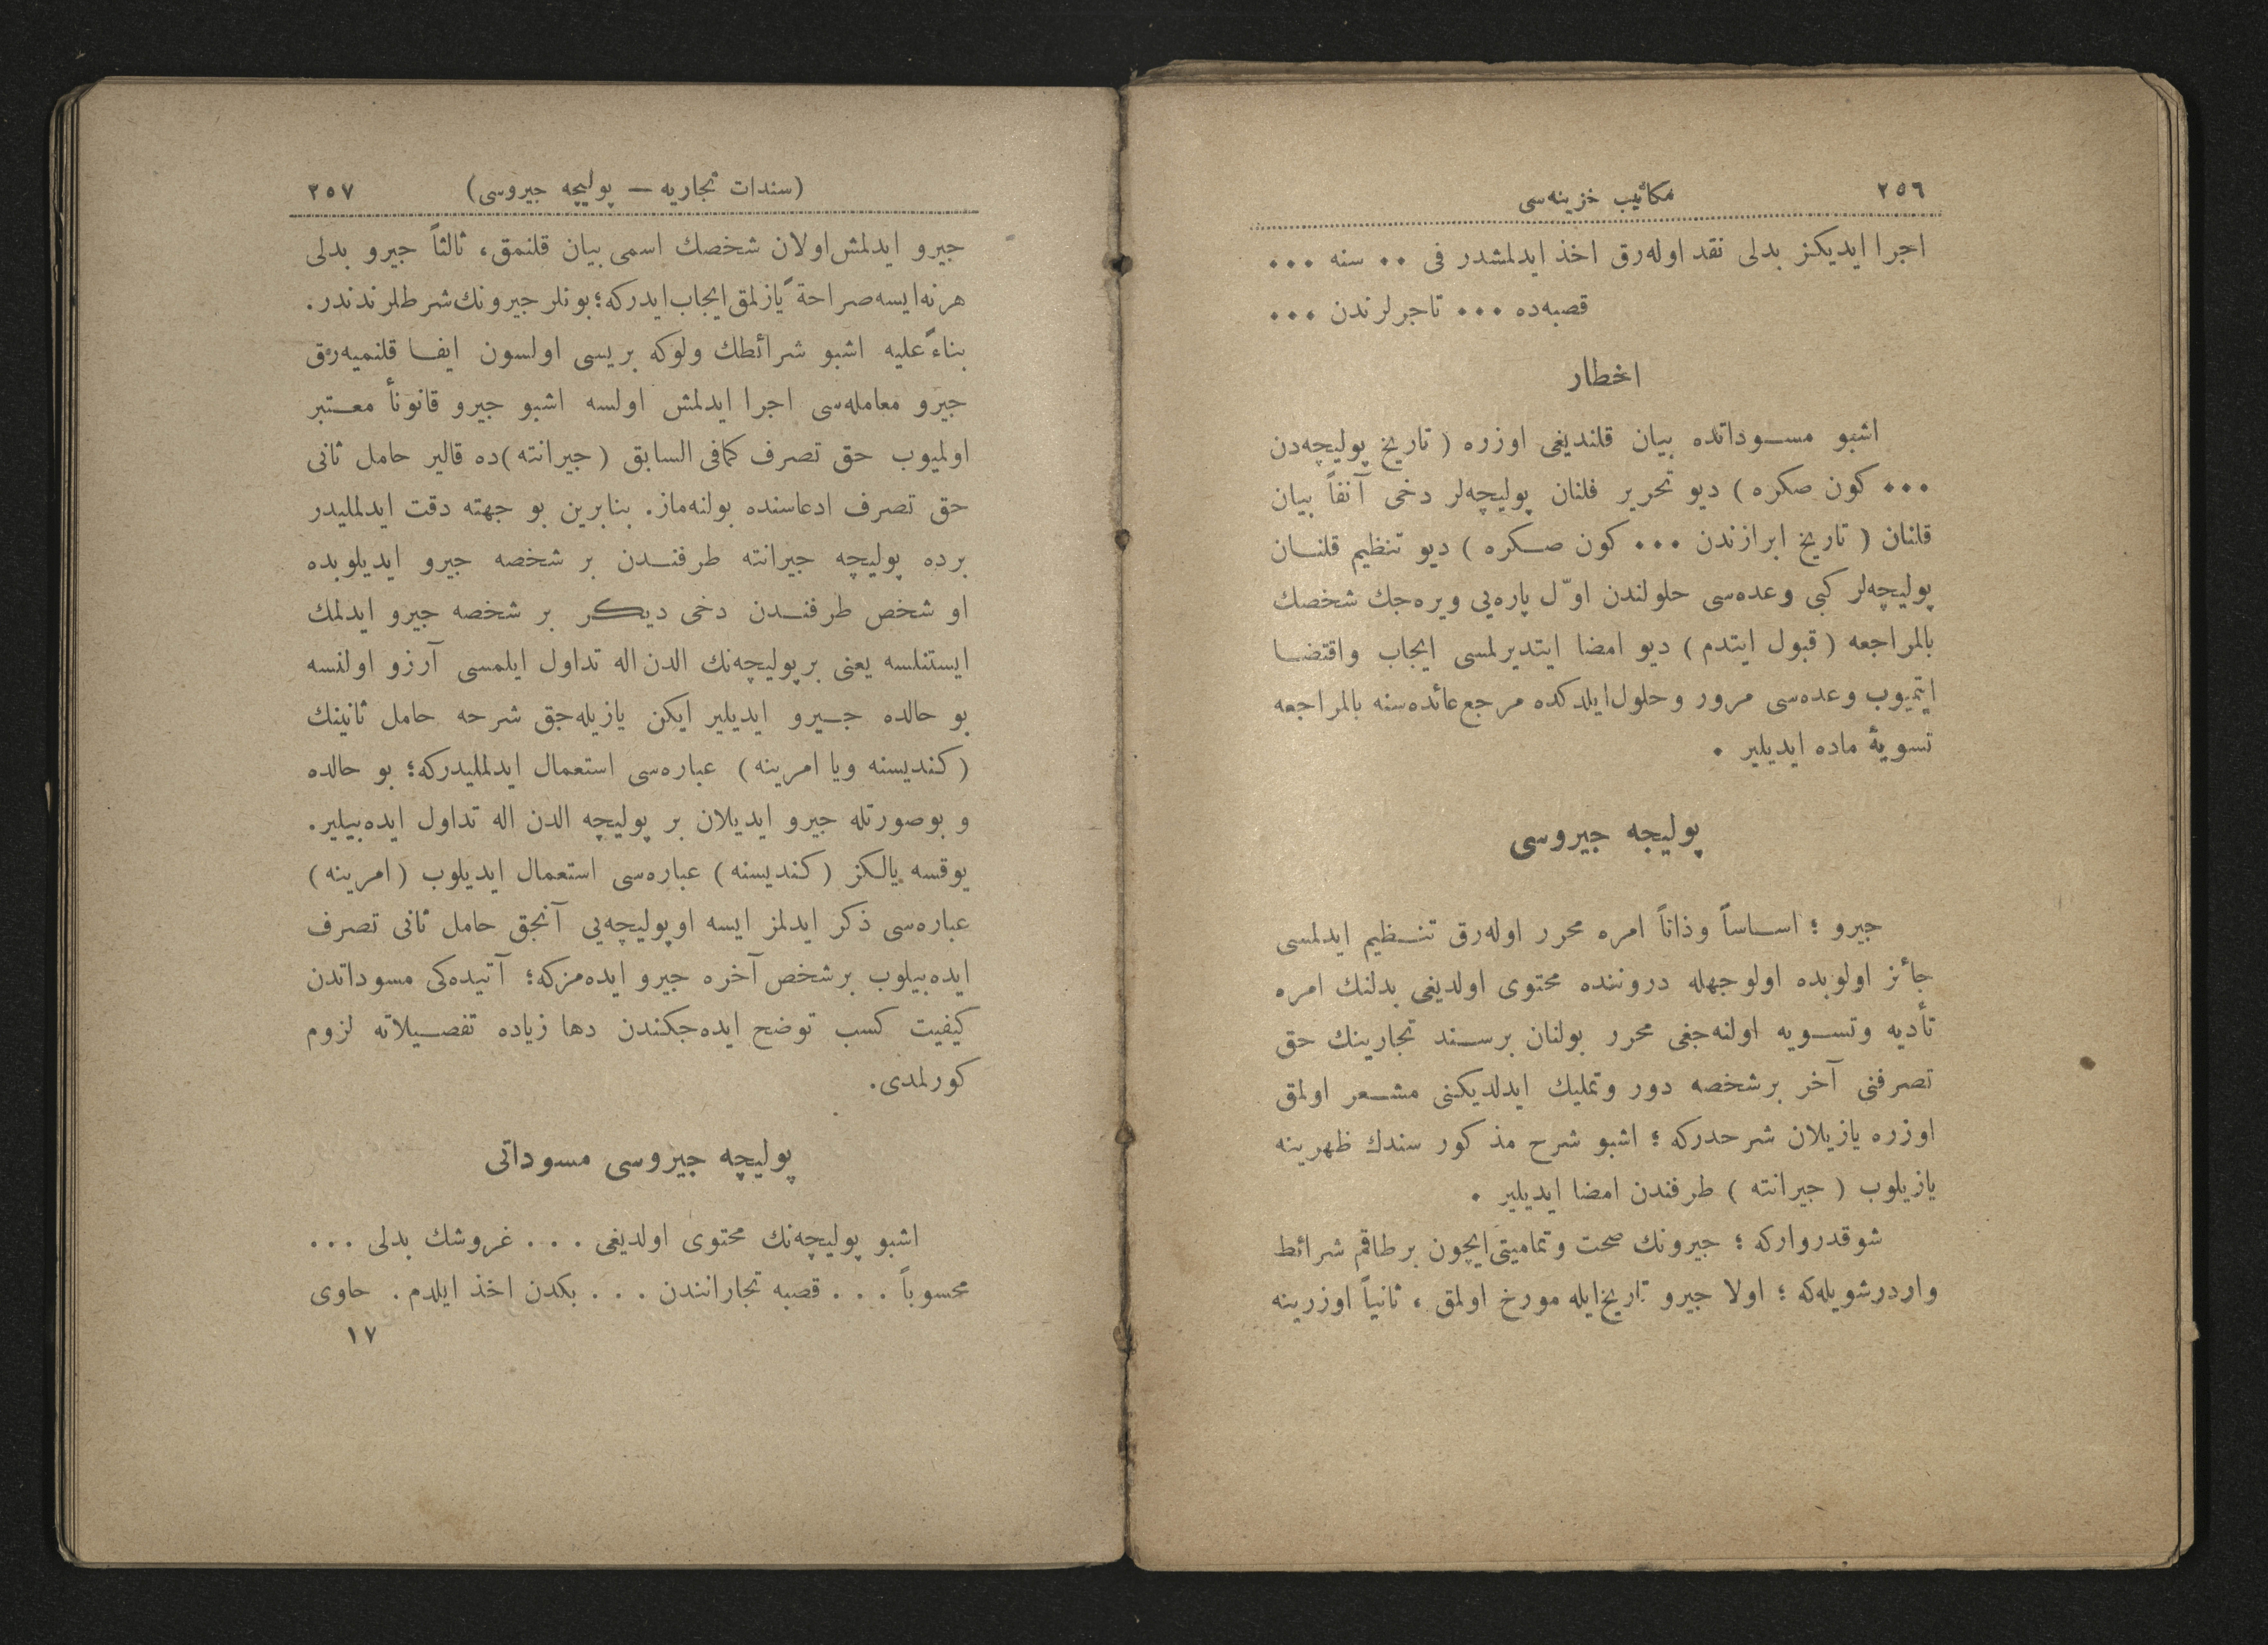 ٢٥٦ مكاتيب خزينه‌سی
اجرا ايديكز بدلی نقد اوله‌رق اخذ ايدلمشدر فی ٠٠ سنه ٠٠٠
قصبه‌ده ٠٠٠ تاجرلرندن ٠٠٠
اخطار
اشبو مسوداتده بيان قلنديغی اوزره ( تاريخ پوليچه‌دن
٠٠٠ كون صكره ) ديو تحرير فلنان پوليچه‌لر دخی آنفاً بيان
قلنان ( تاريخ ابرازندن ٠٠٠ كون صكره ) ديو تنظيم قلنان
پوليچه‌لر كبی وعده‌سی حلولندن اوّل پاره‌يی ويره‌جك شخصك
بالمراجعه ( قبول ايتدم ) ديو امضا ايتديرلمسی ايجاب واقتضا
ايتميوب وعده‌سی مرور وحلول ايلدكده مرجع عائده‌سنه بالمراجعه
تسويۀ ماده ايديلير ٠
پوليجه جيروسی
جيرو ؛ اساساً وذاتاً امره محرر اوله‌رق تنظيم ايدلمسی
جائز اولوبده اولوجهله دروننده محتوی اولديغی بدلنك امره
تأديه وتسويه اولنه‌جغی محرر بولنان برسند تجارينك حق
تصرفنی آخر برشخصه دور وتمليك ايدلديكنی مشعر اولمق
اوزره يازيلان شرحدركه ؛ اشبو شرح مذكور سندك ظهرينه
يازيلوب ( جيرانته ) طرفندن امضا ايديلير ٠
شوقدرواركه ؛ جيرونك صحت وتماميتی ايچون برطاقم شرائط
واردرشويله‌كه ؛ اولا جيرو تاريخ ايله مورخ اولمق ، ثانياً اوزرينه
(سندات تجاريه — پوليچه جيروسی) ٢٥٧
جيرو ايدلمش اولان شخصك اسمی بيان قلنمق، ثالثاً جيرو بدلی
هرنه ايسه صراحةً يازلمق ايجاب ايدركه؛ بونلر جيرونك شرطلرندندر.
بناءً عليه اشبو شرائطك ولوكه بريسی اولسون ايفا قلنميه‌رق
جيرو معامله‌سی اجرا ايدلمش اولسه اشبو جيرو قانوناً معتبر
اولميوب حق تصرف كمافی السابق (جيرانته)ده قالير حامل ثانی
حق تصرف ادعاسنده بولنه‌ماز. بنابرين بو جهته دقت ايدلمليدر
برده پوليچه جيرانته طرفندن بر شخصه جيرو ايديلوبده
او شخص طرفندن دخی ديكر بر شخصه جيرو ايدلمك
ايستنلسه يعنی برپوليچه‌نك الدن اله تداول ايلمسی آرزو اولنسه
بو حالده جيرو ايديلير ايكن يازيله‌جق شرحه حامل ثانينك
(كنديسنه ويا امرينه) عباره‌سی استعمال ايدلمليدركه؛ بو حالده
و بوصورتله جيرو ايديلان بر پوليچه الدن اله تداول ايده‌بيلير.
يوقسه يالكز (كنديسنه) عباره‌سی استعمال ايديلوب (امرينه)
عباره‌سی ذكر ايدلمز ايسه اوپوليچه‌يی آنجق حامل ثانی تصرف
ايده‌بيلوب برشخص آخره جيرو ايده‌مزكه؛ آتيده‌كی مسوداتدن
كيفيت كسب توضح ايده‌جكندن دها زياده تفصيلاته لزوم
كورلمدی.
پوليچه جيروسی مسوداتی
اشبو پوليچه‌نك محتوی اولديغی . . . غروشك بدلی . . .
محسوباً . . . قصبه تجارانندن . . . بكدن اخذ ايلدم . حاوی
١٧